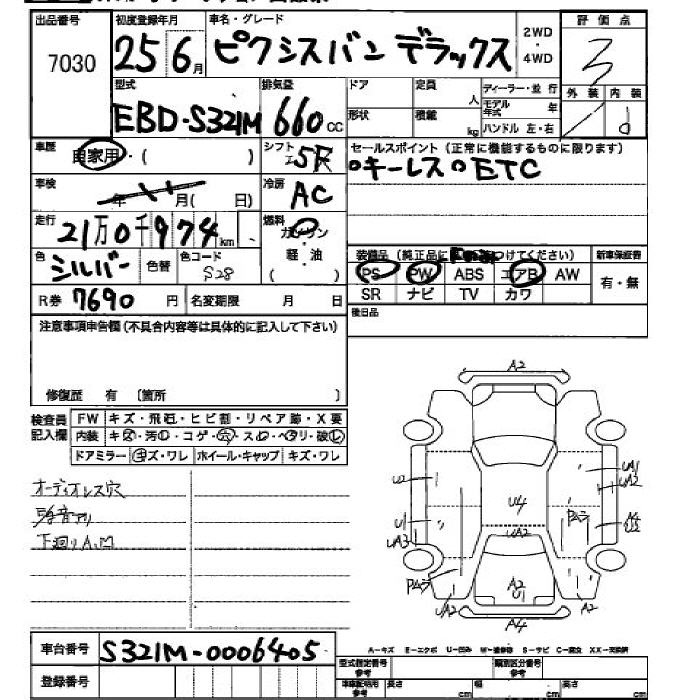 出品番号 初度登録年月 車名・グレード 評価点
7030 25 6月 ピクシスバン デラックス 2WD・4WD 3
型式 排気量 ドア 定員 ディーラー・並行 外装 内装
EBD-S321M 660cc 形状 積載 人 kg モデル年式 年 ハンドル 左・右 d
車歴 自家用・( ) シフト 5F セールスポイント (正常に機能するものに限ります)
車検 年 月( 日) 冷房 AC ○キーレス ○ETC
走行 21万0千974km 燃料 ガソリン・軽・油 ( )
色 シルバー 色替 色コード S28
装備品 (純正品に つけてください) 新車保証書
PS PW ABS エアB AW 有・無
SR ナビ TV カワ
R券 7690円 名変期限 月 日
後日品
注意事項申告欄 (不具合内容等は具体的に記入して下さい)
修復歴 有 〔箇所 〕
検査員記入欄 FW キズ・飛石・ヒビ割・リペア跡・X要
内装 キズ・汚レ・コゲ・穴・スレ・ベタリ・破レ
ドアミラー キズ・ワレ ホイール・キャップ キズ・ワレ
オーディオレス穴
下廻りA.M
A2
U2 UA1 UA2
U4
U1 Pムラ
UA3 UA2
Pムラ A2 U1
UA2 A4 A2
車台番号 S321M-0006405
A-キズ E-エクボ U-凹み W-補修跡 S-サビ C-腐食 XX-交換済
登録番号 型式指定番号 参考 類別区分番号 参考
車庫証明用 参考 長さ cm 幅 cm 高さ cm